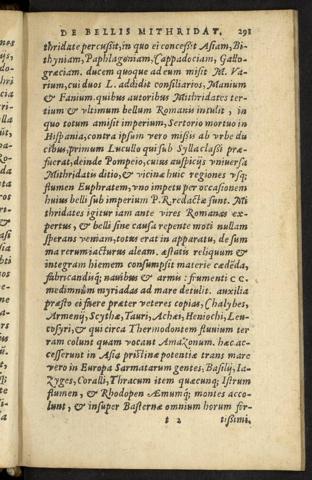 DE BELLIS MITHRIDAT. 291
thridate percussit, in quo ei concessit Asiam, Bi-
thyniam, Paphlagoniam, Cappadociam, Gallo-
græciam. ducem quoque ad eum misit M. Va-
rium, cui duos L. addidit consiliarios, Manium
& Fanium. quibus autoribus Mithridates ter-
tium & vltimum bellum Romanis intulit, in
quo totum amisit imperium, Sertorio mortuo in
Hispania, contra ipsum vero missis ab vrbe du
cibus, primum Lucullo qui sub Sylla classi præ-
fuerat, deinde Pompeio, cuius auspicijs vniuersa
Mithridatis ditio, & vicinæ huic regiones vsq;
flumen Euphratem, vno impetu per occasionem
huius belli sub imperium P. R. redactæ sunt. Mi
thridates igitur iam ante vires Romanas ex-
pertus, & belli sine causa repente moti nullam
sperans veniam, totus erat in apparatu, de sum
ma rerum iacturus aleam. æstatis reliquum &
integram hiemem consumpsit materiæ cædēda,
fabricandisq; nauibus & armis: frumenti cc
medimnūm myriadas ad mare detulit. auxilia
præsto ei fuere præter veteres copias, Chalybes,
Armenij, Scythæ, Tauri, Achæi, Heniochi, Leu-
cosyri, & qui circa Thermodontem fluuium ter
ram colunt quam vocant Amazonum. hæc ac-
cesserunt in Asia pristinæ potentiæ trans mare
vero in Europa Sarmatarum gentes, Basilij, Ia-
zyges, Coralli, Thracum item quæcunq; Istrum
flumen, & Rhodopen Æmumq; montes acco-
lunt, & insuper Basternæ omnium horum for-
t 2 tissimi.